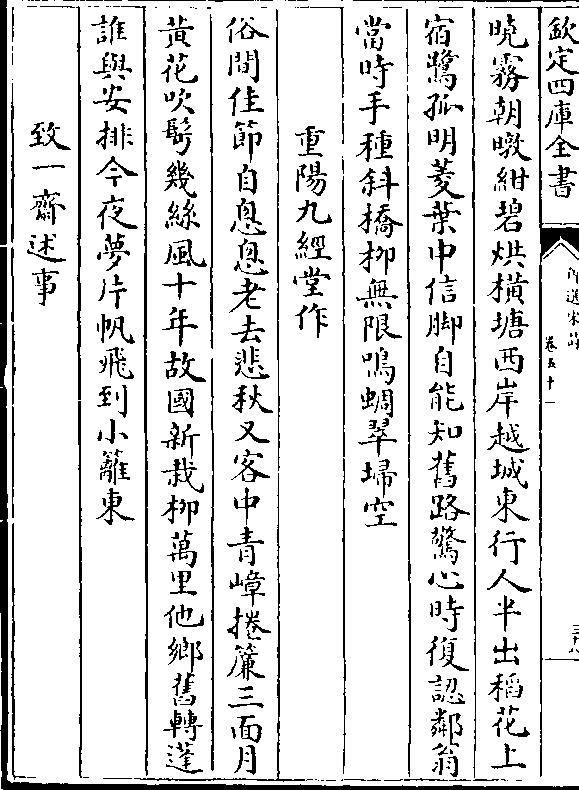 欽定四庫全書
卷五十一
曉霧朝暾紺碧烘橫塘西岸越城東行人半出稻花上
宿鷺孤明菱葉中信脚自能知舊路驚心時復認鄰翁
當時手種斜橋柳無限鳴蜩翠埽空
重陽九經堂作
俗間佳節自悤悤老去悲秋又客中青嶂捲簾三面月
黄花吹鬢幾絲風十年故國新栽柳萬里他鄉舊轉蓬
誰與安排今夜夢片帆飛到小籬東
致一齋述事